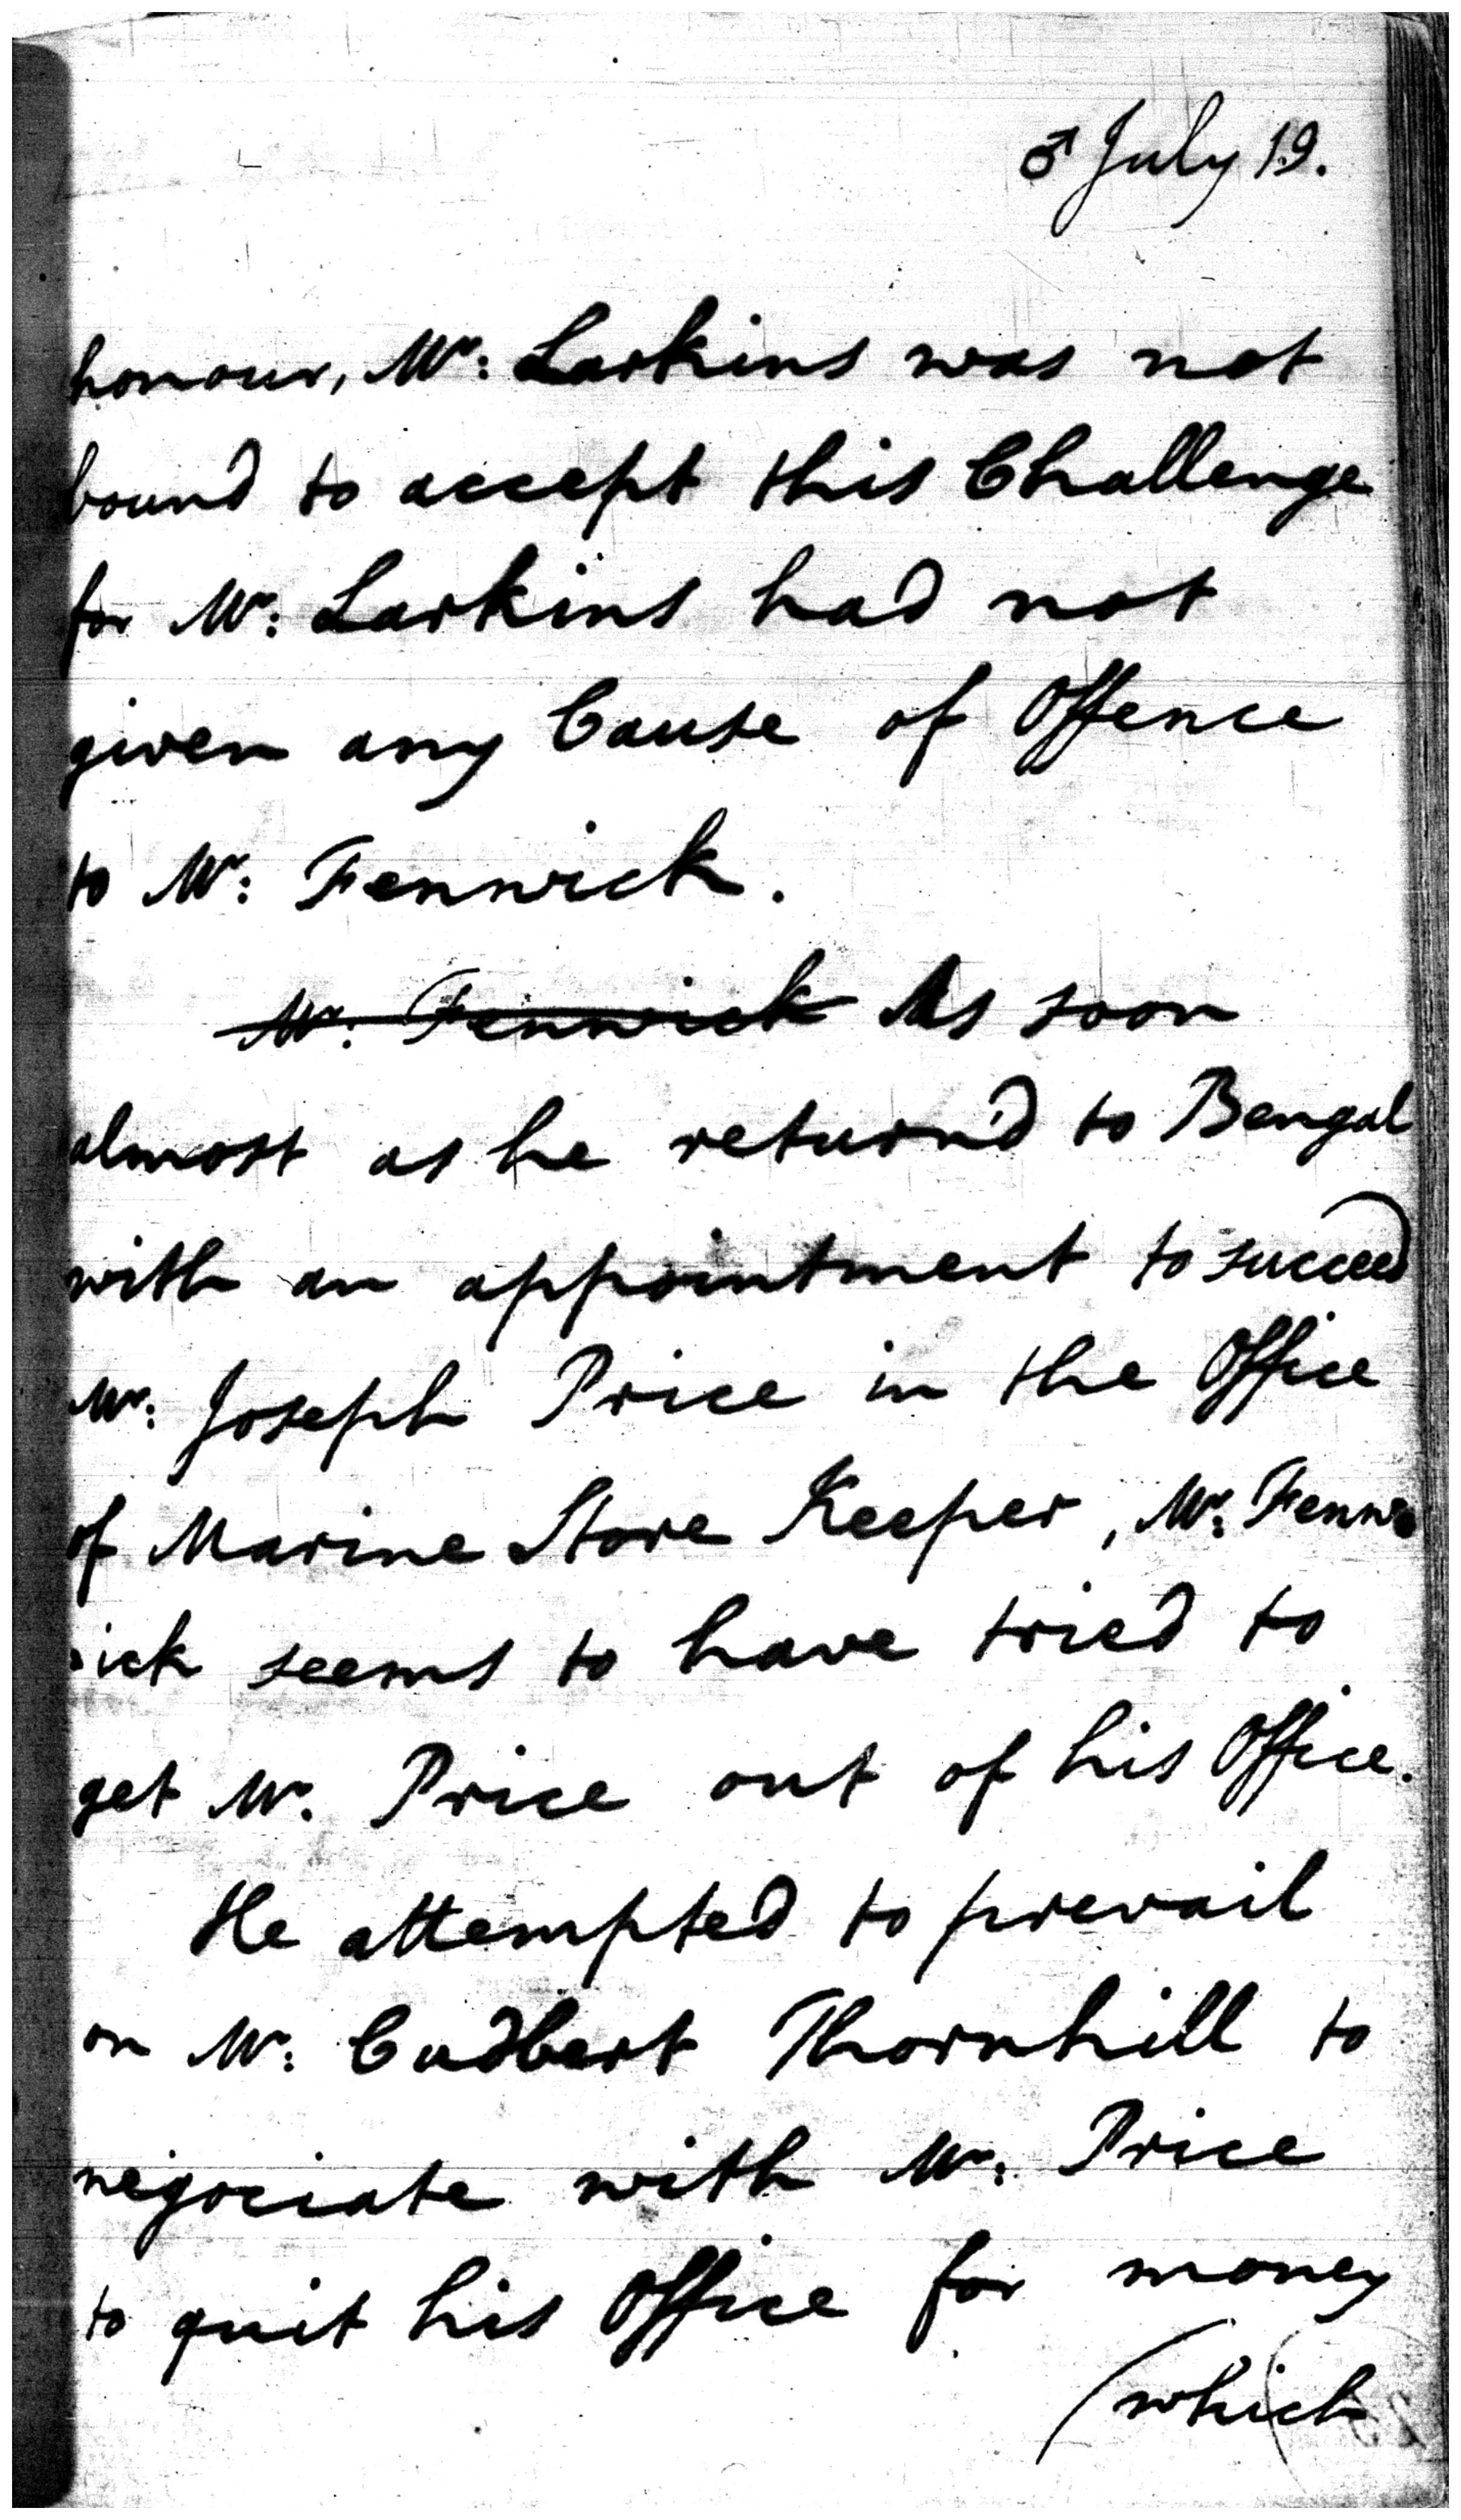 ♂ July 19.
honour, Mr: Larkins was not
bound to accept this Challenge
for Mr: Larkins had not
given any Cause of Offence
to Mr: Fennwick.
Mr: Fennwick As soon
almost as he return'd to Bengal
with an appointment to succeed
Mr: Joseph Price in the Office
of Marine Store Keeper, Mr: Fennw
ick seems to have tried to
get Mr. Price out of his Office.
He attempted to prevail
on Mr: Cudbert Thornhill to
negociate with Mr: Price
to quit his Office for money
(which